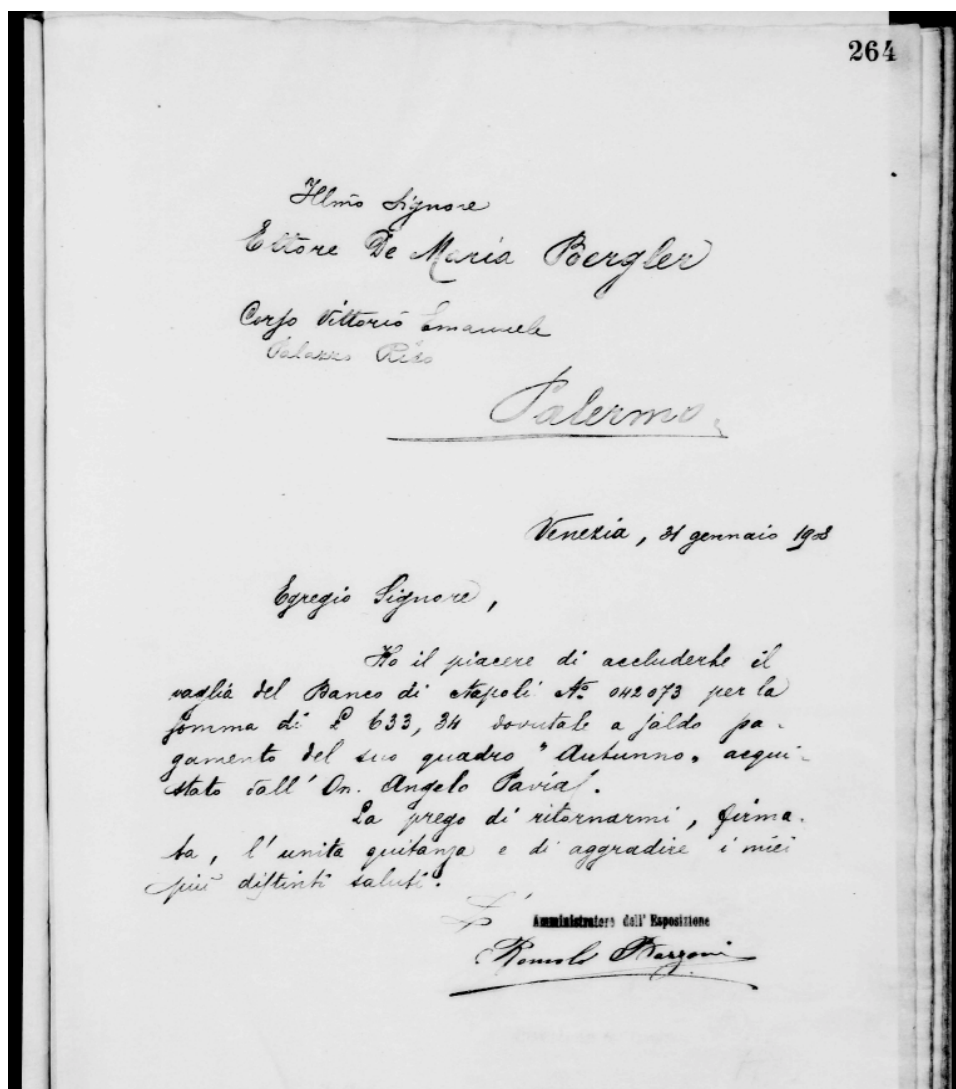 264
Illmo Signore
Ettore De Maria Bergler
Corso Vittorio Emanuele
Palazzo Riso
Palermo.
Venezia, 31 gennaio 1908
Egregio Signore,
Ho il piacere di accluderle il
vaglia del Banco di Napoli No 042073 per la
somma di £ 633,34 dovutale a saldo pa-
gamento del suo quadro "Autunno" acqui-
stato dall'On. Angelo Pavia.
La prego di ritornarmi, firma-
ta, l'unita quitanza e di aggradire i miei
più distinti saluti.
L'Amministratore dell'Esposizione
Romolo Bazzoni